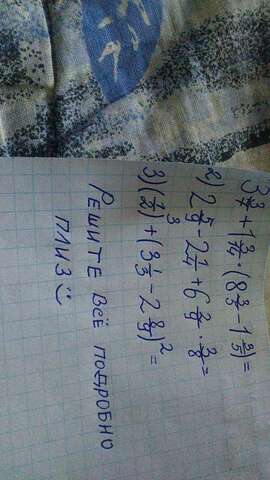 3 3/7 + 1 3/14 · (8 2/3 - 1 3/5) =
2) 2 5/7 - 2 1/4 + 6 2/7 · 3/8 =
3) (1/2)³ + (3 1/3 - 2 8/9)² =
РЕШИТЕ ВСЁ ПОДРОБНО
ПЛИЗ